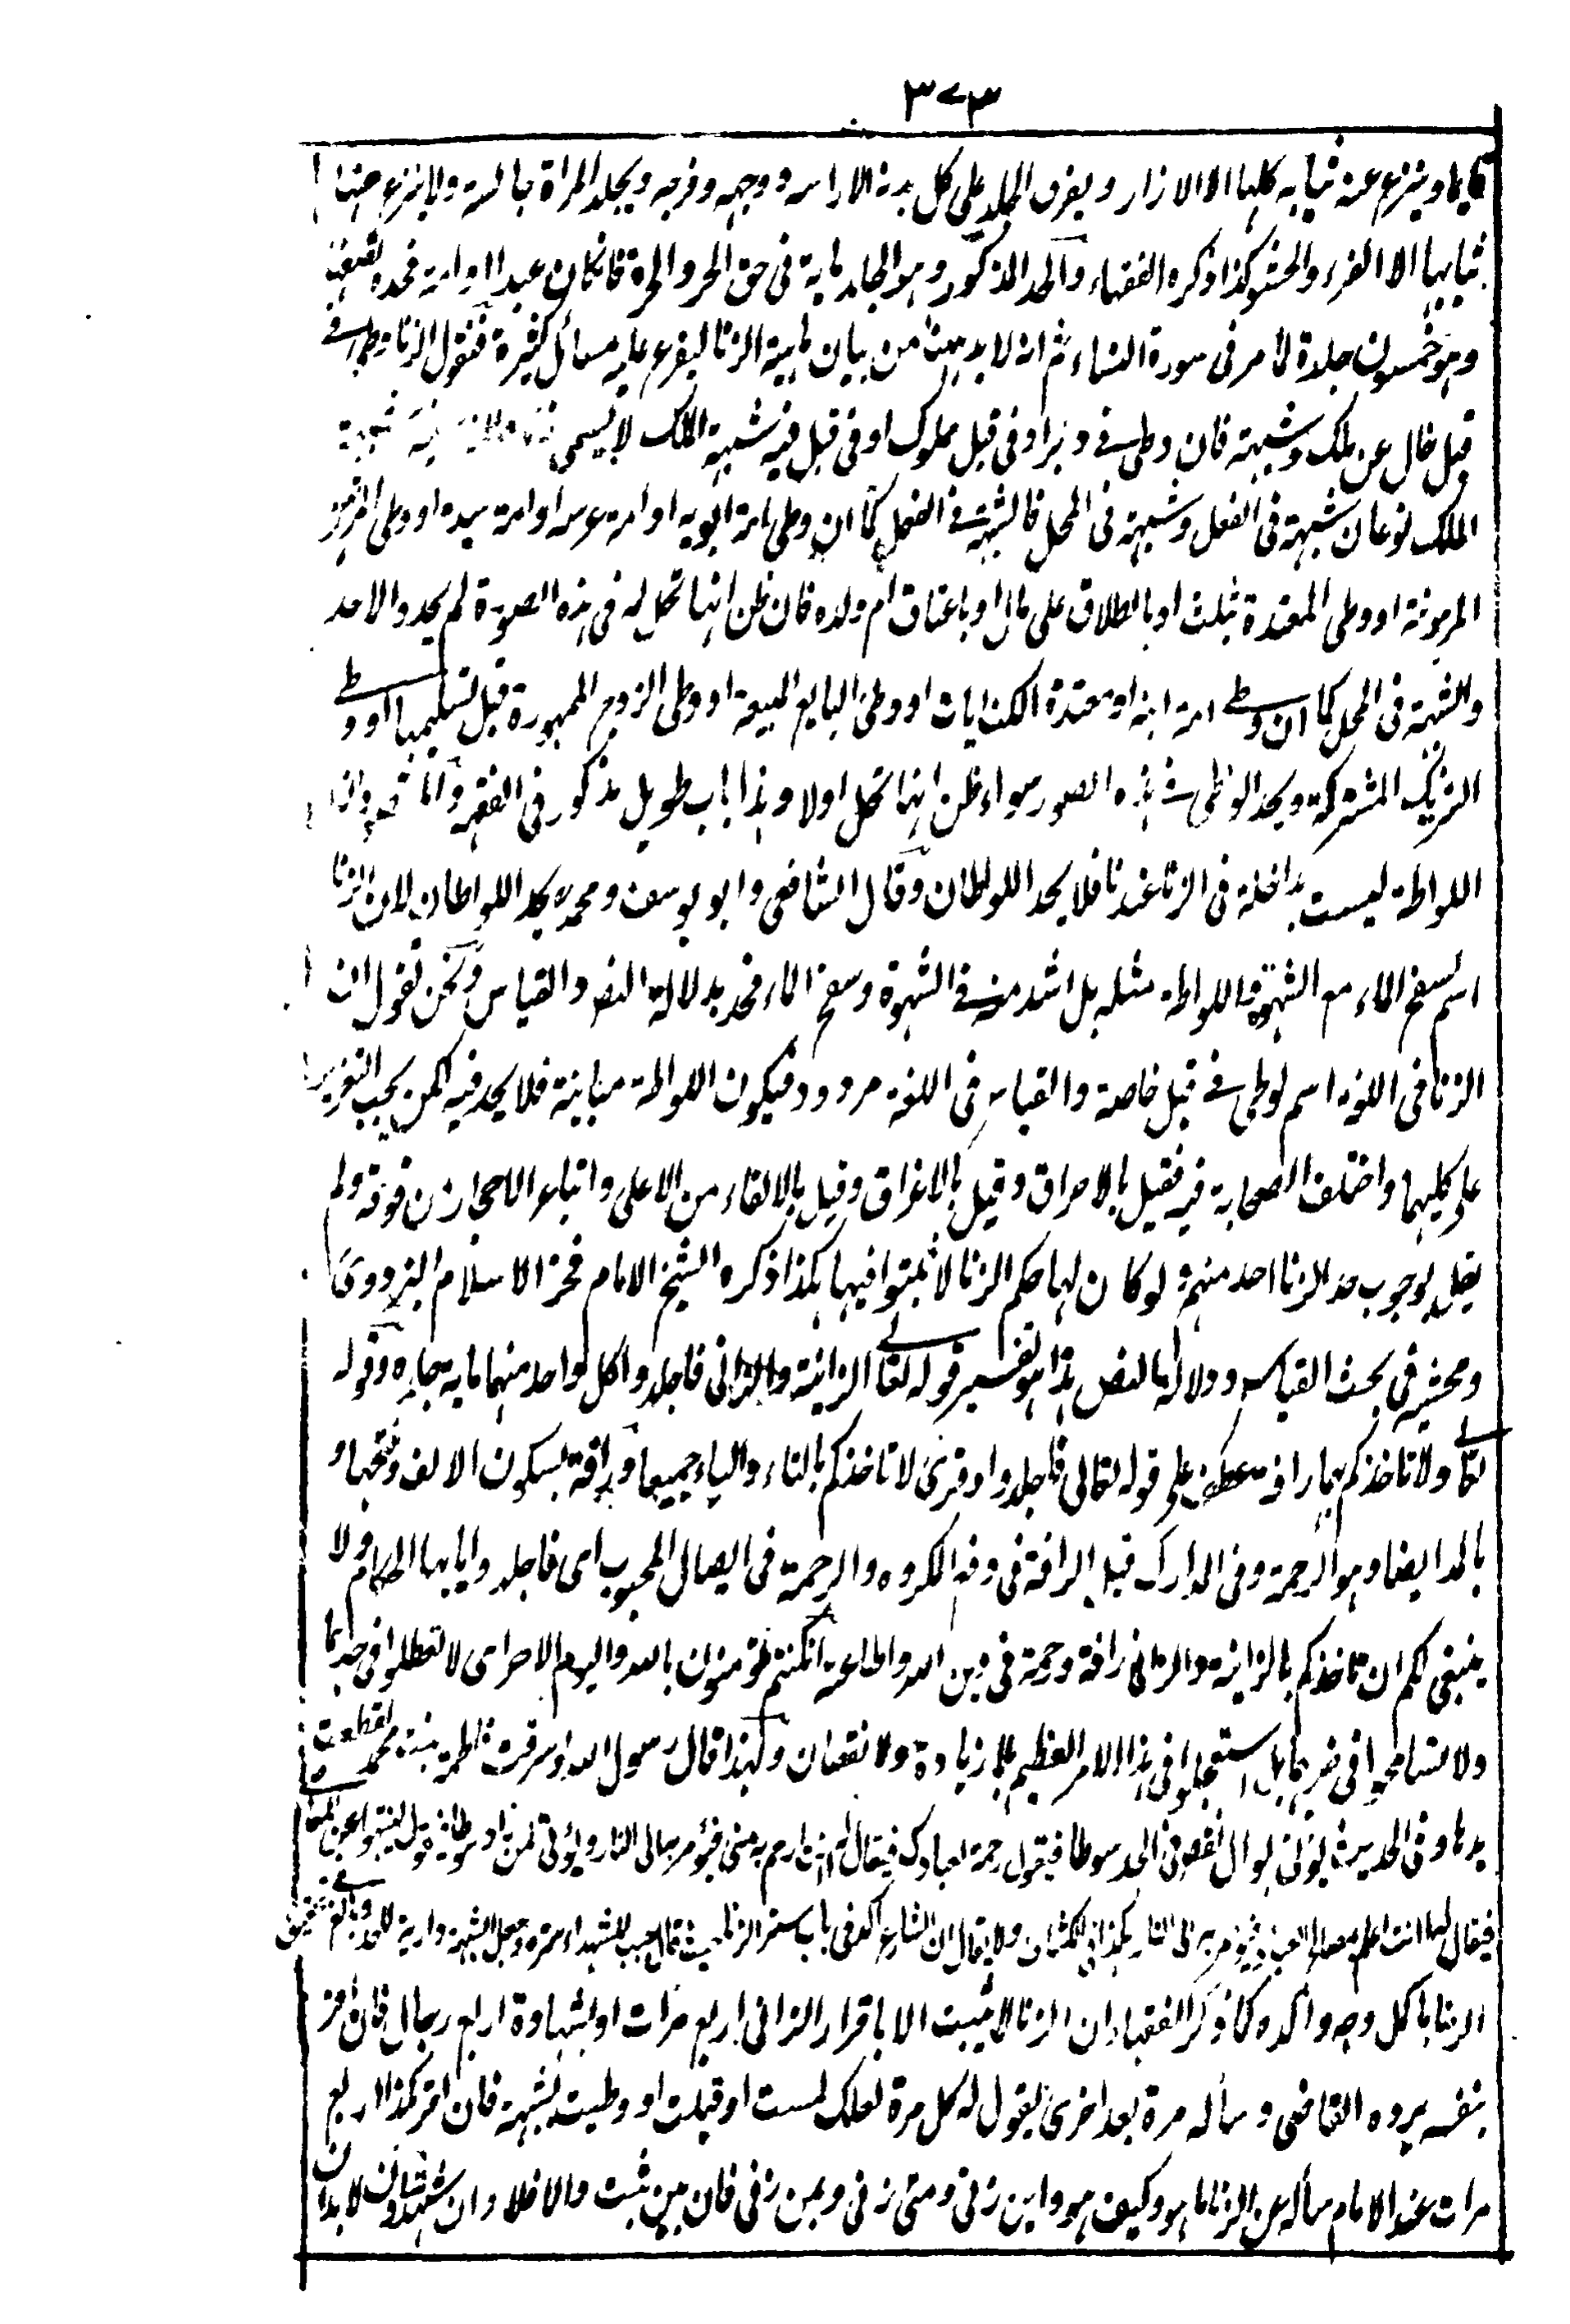 ٣٧٣
قايما وينزع عنه ثيابه كلها الا الازار ويفرق الجلد على كل بدنه الا راسه ووجهه وفرجه ويجلد المراة جالسة ولا ينزع عنها
ثيابها الا الفرو والحشو كذا ذكره الفقهاء والحد المذكور وهو الجلد ماية فى حق الحر والحرة فان كان عبدا او امة فحده نصفها
وهو خمسون جلدة لما مر فى سورة النساء ثم انه لا بد ههنا من بيان ماهية الزنا ليفرع عليه مسائل كثيرة فنقول الزنا وطى فى
قبل خال عن ملك وشبهة فان وطى فى دبر او فى قبل مملوك او فى قبل فيه شبهة الملك لا يسمى
الملك نوعان شبهة فى الفعل وشبهة فى المحل فالشبهة فى الفعل كما ان وطى امة ابويه او امة عرسه او امة سيده او وطى المرتهن
المرهونة او وطى المعتدة بثلث او بالطلاق على مال او باعتاق ام ولده فان ظن انها تحل له فى هذه الصورة لم يحد والا حد
والشبهة فى المحل كما ان وطى امة ابنه او معتدة الكنايات او وطى البايع المبيعة او وطى الزوج الممهورة قبل تسليمها او وطى
الشريك المشتركة ويحد الوطى فى هذه الصور سواء ظن انها تحل اولا وهذا باب طويل مذكور فى الفقه وانما
اللواطة ليست بداخلة فى الزنا عندنا فلا يحد اللوطان وقال الشافعى وابو يوسف ومحمد يحد اللواطان لان الزنا
اسم لسفح الماء مع الشهوة فاللواطة مثله بل اشد منه فى الشهوة وسفح الماء فحد بدلالة النص والقياس ونحن نقول ان
الزنا فى اللغة اسم لوطى فى قبل خاصة والقياس فى اللغة مردود فيكون اللواطة مباينة فلا يحد فيه لكن يجب التعزير
على كليهما واختلف الصحابة فيه فقيل بالاحراق وقيل بالاغراق وقيل بالالقاء من الاعلى واتباع الاحجار من فوقه ولم
يقل بوجوب حد الزنا احد منهم ولو كان لها حكم الزنا لاثبتوا فيها هكذا ذكره الشيخ الامام فخر الاسلام البزدوى
ومحشيه فى بحث القياس ودلالة النص هذا هو تفسير قوله تعالى الزانية والزانى فاجلدوا كل واحد منهما ماية جلدة وقوله
تعالى ولا تاخذكم بهما رافة عطف على قوله تعالى فاجلدوا وقرى لا تاخذكم بالتاء والياء جميعا ورافة بسكون الالف وفتحها و
بالمد ايضا وهو الرحمة وفى المدارك قيل الرافة فى دفع المكروه والرحمة فى ايصال المحبوب اى فاجلدوا ايها الحكام ولا
ينبغى لكم ان تاخذكم بالزانية والزانى رافة ورحمة فى دين الله واطاعته ان كنتم تؤمنون بالله واليوم الاخر اى لا تعطلوا فى حدهما
ولا تسامحوا فى ضربهما بل استعجلوا فى هذا الامر العظيم بلا زيادة ولا نقصان ولهذا قال رسول الله لو سرقت فاطمة بنت محمد لقطعت
يدها وفى الحديث يؤتى بوال نقص فى الحد سوطا فيقول رحمة لعبادك فيقال له انت ارحم به منى فيؤمر به الى النار ويؤتى بمن زاد سوطا فيقول لينتهوا عن المعاصى
فيقال لها انت اعلم بمصالح العبد فيؤمر به الى النار هكذا فى الكشاف ولا يقال ان الشارع اكد فى باب ستر الزنا حيث قال
الزنا باكمل وجه واكده كما ذكر الفقهاء ان الزنا لا يثبت الا باقرار الزانى اربع مرات او بشهادة اربع رجال فان اقر
بنفسه يرده القاضى وسأله مرة بعد اخرى يقول له كل مرة لعلك لمست او قبلت او وطيت بشبهة فان اقر هكذا اربع
مرات عند الامام سأله عن الزنا ما هو وكيف هو واين زنى ومتى زنى وبمن زنى فان بين ثبت والا فلا وان شهد شاهدان لا بد ان